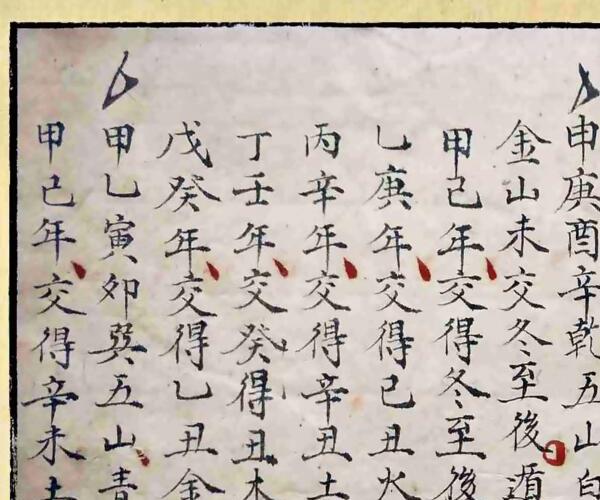 申庚酉辛乾五山白
金山未交冬至後遁
甲己年交得冬至後
乙庚年交得己丑火
丙辛年交得辛丑土
丁壬年交癸得丑木
戊癸年交得乙丑金
甲乙寅卯巽五山青
甲己年交得辛未土